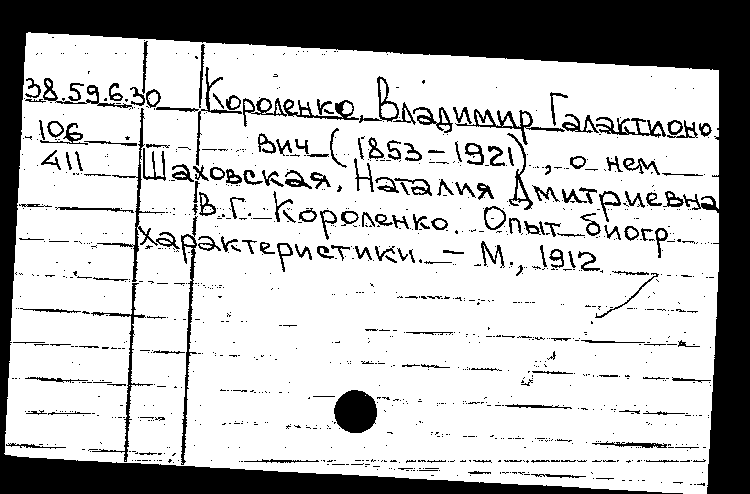 38.59.6.30 Короленко, Владимир Галактионо-
106 вич (1853-1921), о нем
411 Шаховская, Наталия Дмитриевна
В.Г. Короленко. Опыт биогр.
характеристики. - М., 1912